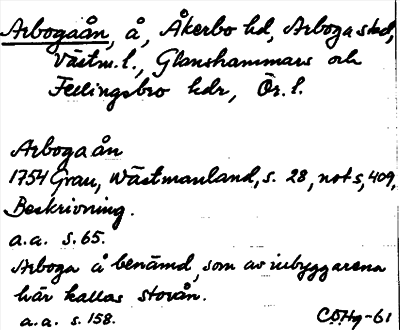 Arbogaån, å, Åkerbo hd, Arboga stad,
Västm. l., Glanshammars och
Fellingsbro hdr, Ör. l.
Arbogaån
1754 Grau, Wästmanland, s. 28, not s, 409,
Beskrivning.
a.a. s. 65.
Arboga å benämd, som av inbyggarena
här kallas storån.
a.a. s. 158.
CÖHg-61